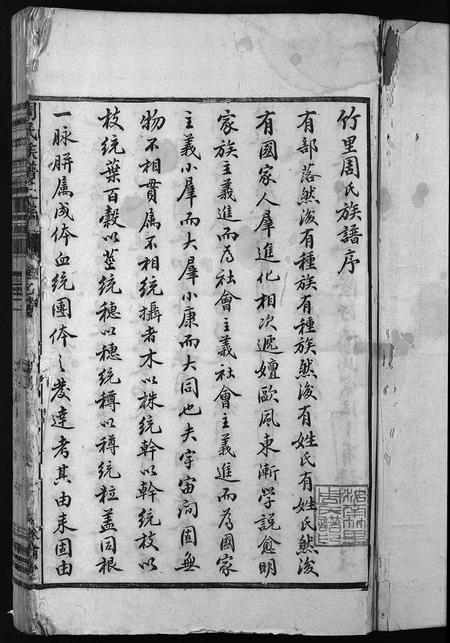 竹里周氏族譜序
有部落然後有種族有種族然後有姓氏有姓氏然後
有國家人羣進化相次遞嬗歐風東漸學説愈明
家族主義進而為社會主義社會主義進而為國家
主義小羣而大羣小康而大同也夫宇宙間固無
物不相貫属不相統攝者木以株統幹以幹統枝以
枝統葉百榖以莖統穗以穗統稃以稃統粒蓋同根
一脉胼属成体血統團体之發達者其由来固由
周氏族譜